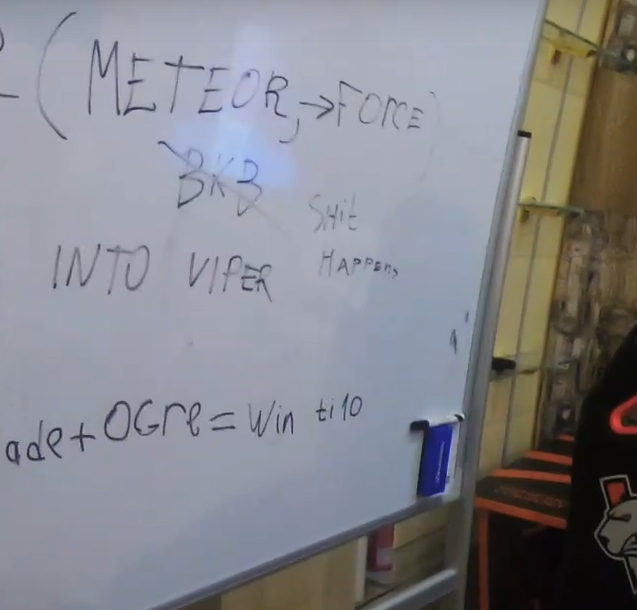 (METEOR, →FORCE)
BKB
SHit
HAPPENS
INTO VIPER
ade+OGre=Win ti10